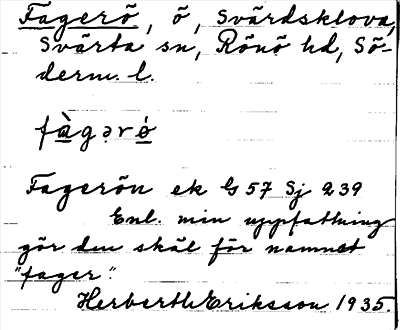 Fagerö, ö, Svärdsklova,
Svärta sn, Rönö hd, Sö-
derm. l.
fàgərö́
Fagerön ek G 57 Sj 239
Enl. min uppfattning
gör den skäl för namnet
"fager."
Herbert Eriksson 1935.